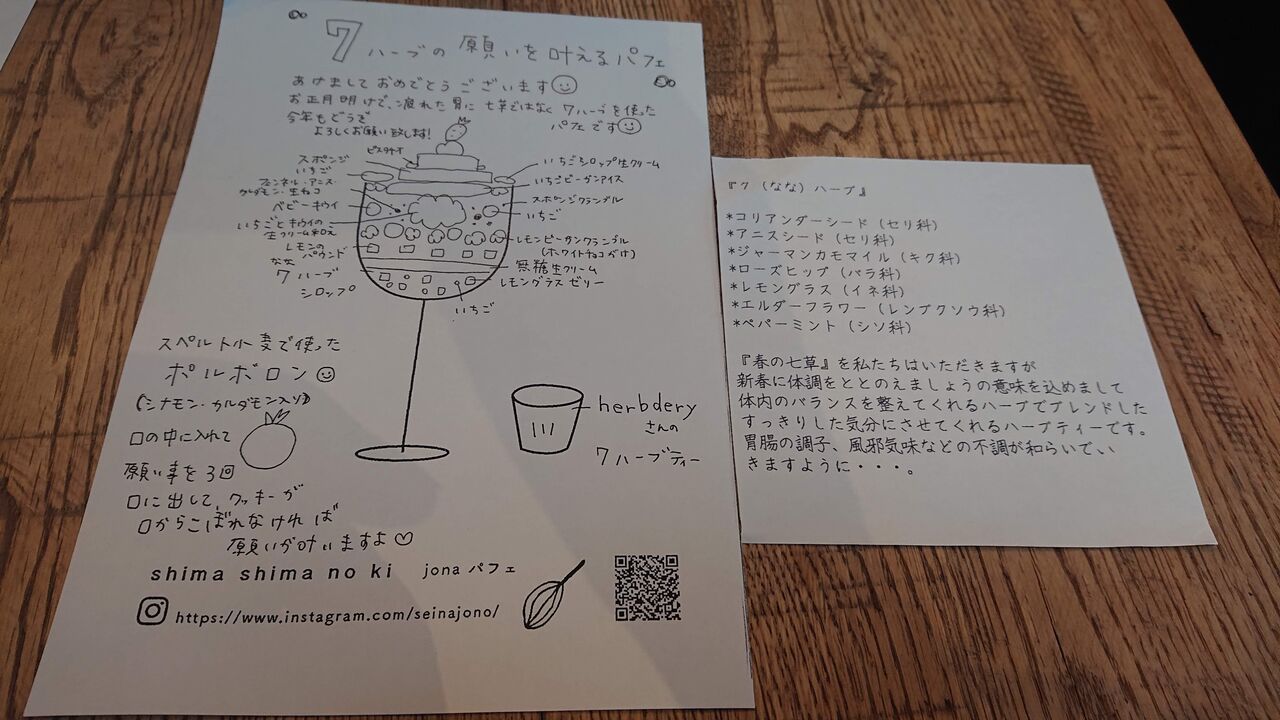 7ハーブの願いを叶えるパフェ
あけましておめでとうございます
お正月明けで、疲れた胃に七草ではなく7ハーブを使った
パフェです
今年もどうぞ
よろしくお願い致します!
ピスタチオ
スポンジ
いちご
フェンネル・アニス・
カルダモン・生チョコ
ベビーキウイ
いちごとキウイの
生クリーム和え
レモンの
パウンド
なな
7ハーブ
シロップ
いちごシロップ生クリーム
いちごビーガンアイス
スポンジクランブル
いちご
レモンビーガンクランブル
(ホワイトチョコがけ)
無糖生クリーム
レモングラスゼリー
いちご
スペルト小麦で使った
ポルボロン
(シナモン・カルダモン入り)
口の中に入れて
願い事を3回
口に出して、クッキーが
口からこぼれなければ
願いが叶いますよ♡
herbdery
さんの
7ハーブティー
shima shima no ki jona パフェ
https://www.instagram.com/seinajono/
『7(なな)ハーブ』
*コリアンダーシード(セリ科)
*アニスシード(セリ科)
*ジャーマンカモマイル(キク科)
*ローズヒップ(バラ科)
*レモングラス(イネ科)
*エルダーフラワー(レンプクソウ科)
*ペパーミント(シソ科)
『春の七草』を私たちはいただきますが
新春に体調をととのえましょうの意味を込めまして
体内のバランスを整えてくれるハーブでブレンドした
すっきりした気分にさせてくれるハーブティーです。
胃腸の調子、風邪気味などの不調が和らいでい
きますように・・・。